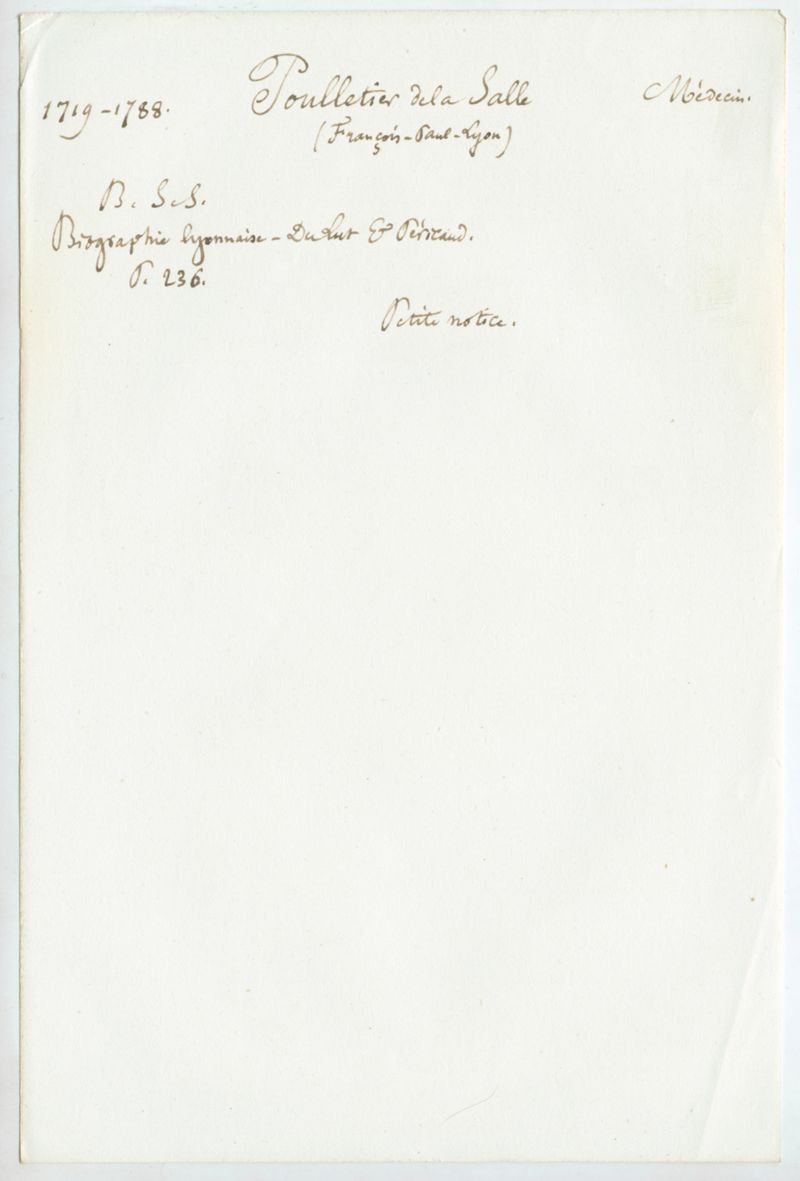 1719-1788. Poulletier de la Salle Médecin.
(François-Paul-Lyon)
B. S. S.
Biographie lyonnaise - Du Lut & Péricaud.
P. 236.
Petite notice.